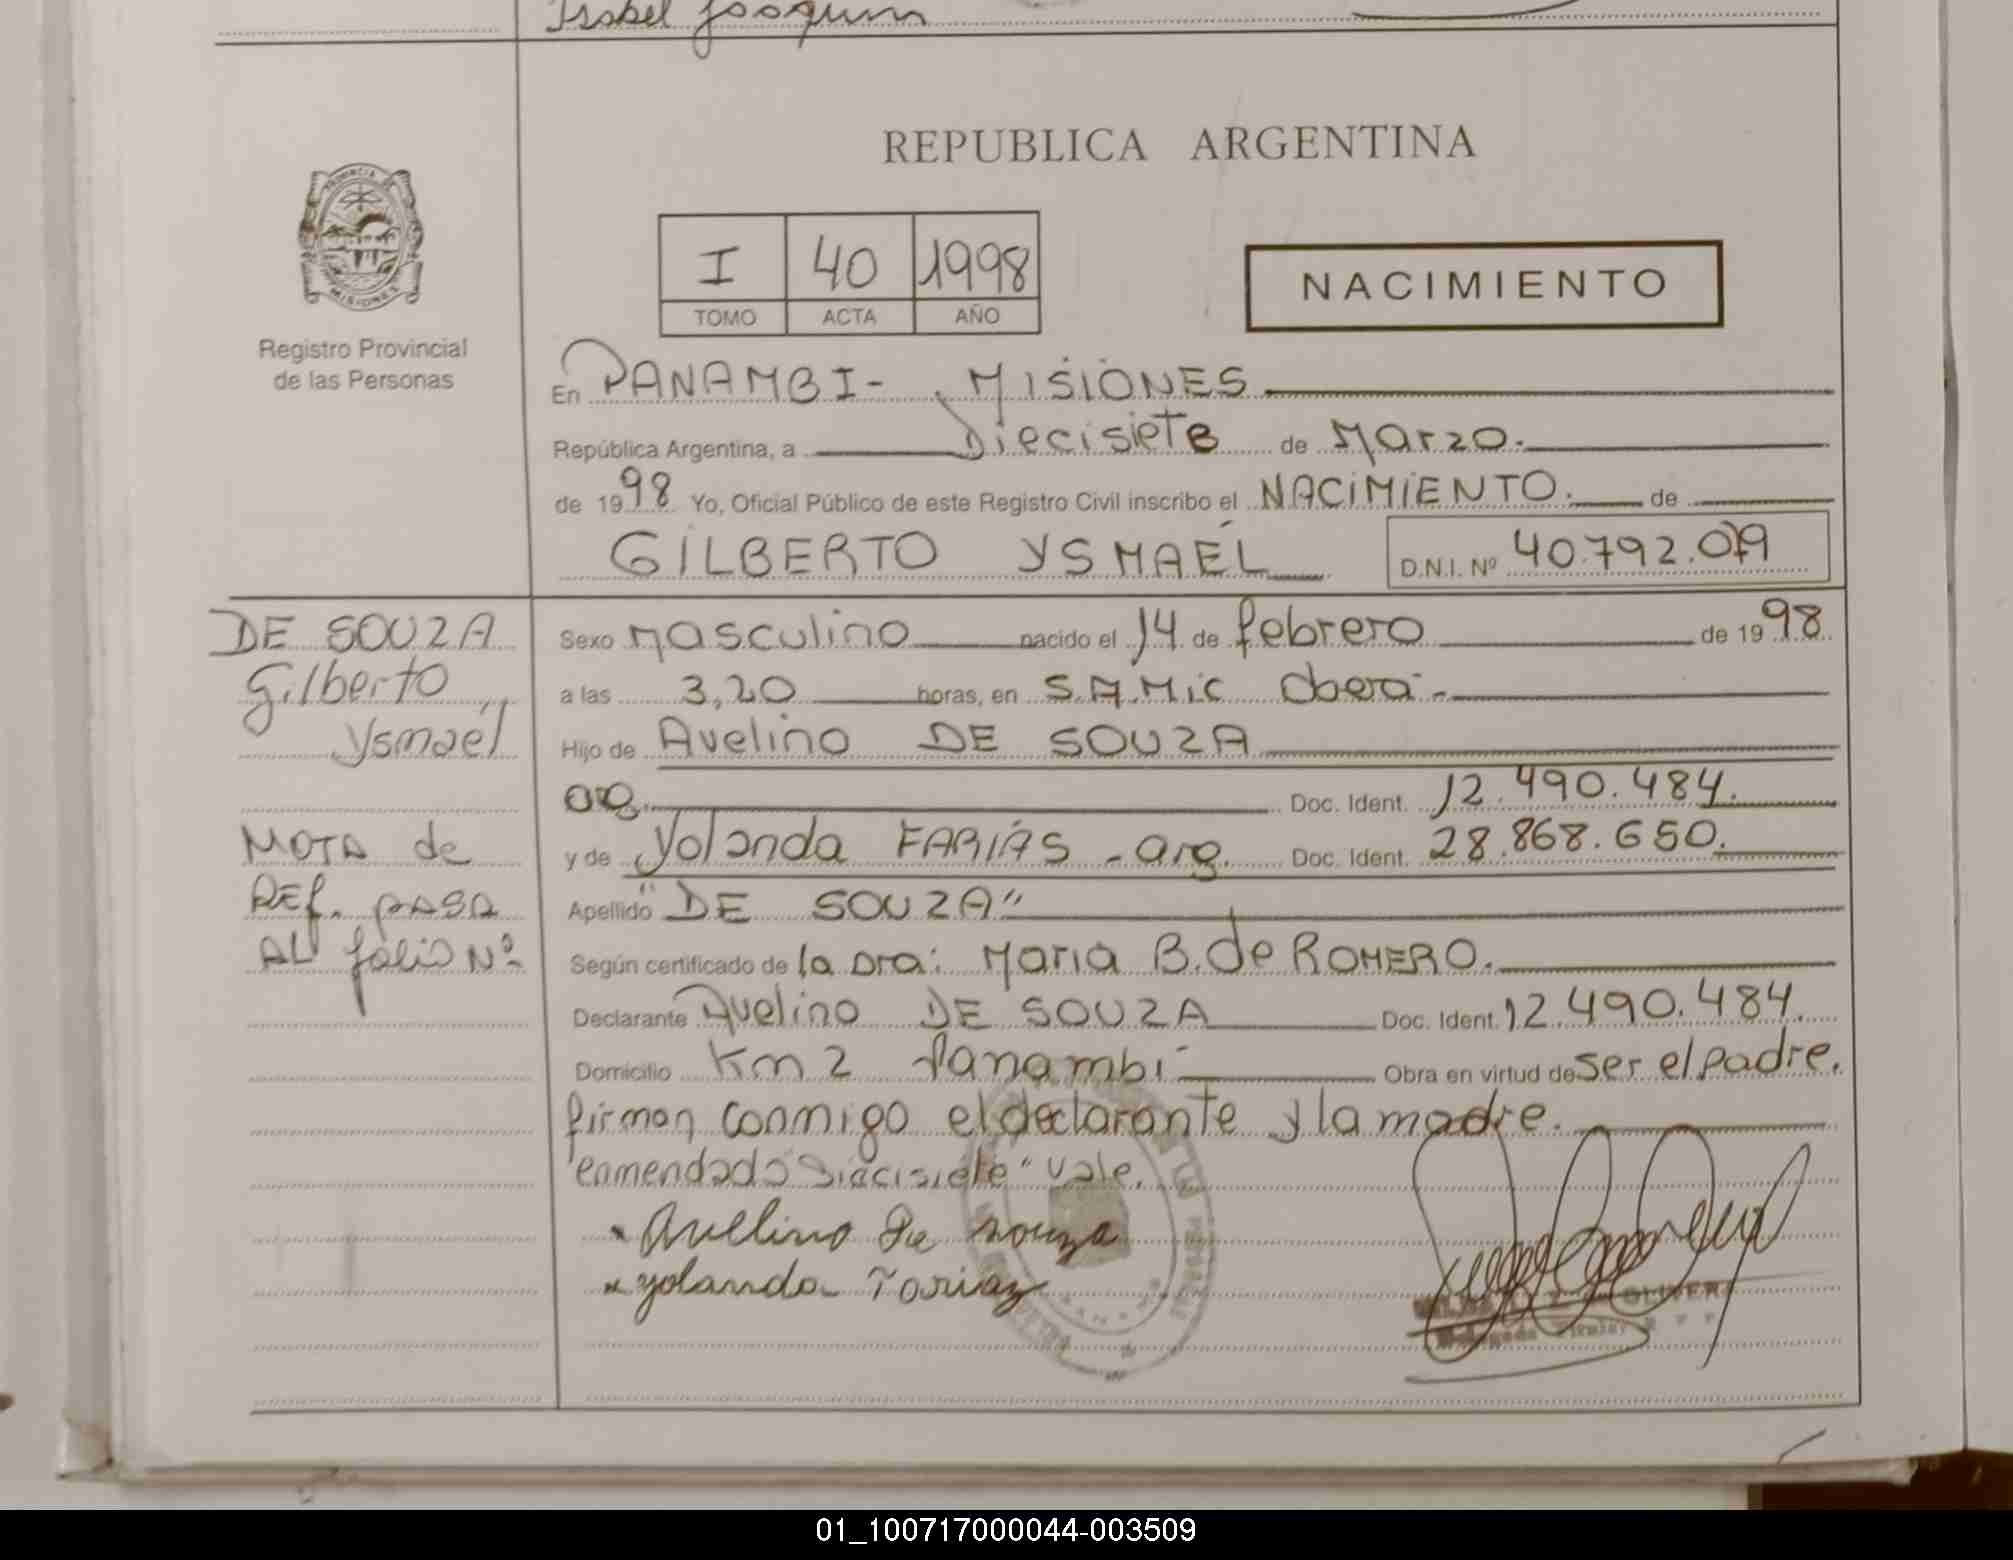 Isabel Joaquim
REPUBLICA ARGENTINA
PROVINCIA DE
MISIONES
Registro Provincial
de las Personas
I 40 1998
TOMO ACTA AÑO
NACIMIENTO
En PANAMBI - MISIONES
República Argentina, a Diecisiete de Marzo.
de 1998 Yo, Oficial Público de este Registro Civil inscribo el NACIMIENTO. de
GILBERTO YSMAÉL D.N.I. Nº 40.792.079
DE SOUZA
Gilberto
Ysmaél
NOTA de
REf. PASA
AL folio Nº
Sexo Masculino nacido el 14 de febrero de 1998
a las 3,20 horas, en S.A.Mic Oberá -
Hijo de Avelino DE SOUZA
arg. Doc. Ident. 12.490.484.
y de Yolanda FARIAS - arg. Doc. Ident. 28.868.650.
Apellido "DE SOUZA"
Según certificado de la Dra: Maria B. de ROMERO.
Declarante Avelino DE SOUZA Doc. Ident. 12.490.484.
Domicilio Km 2 Panambí Obra en virtud de ser el padre.
firman conmigo el declarante y la madre.
enmendado "Diecisiete" vale.
Avellino De souza
yolanda Fariaz
OLIVERA
Titular
01_100717000044-003509